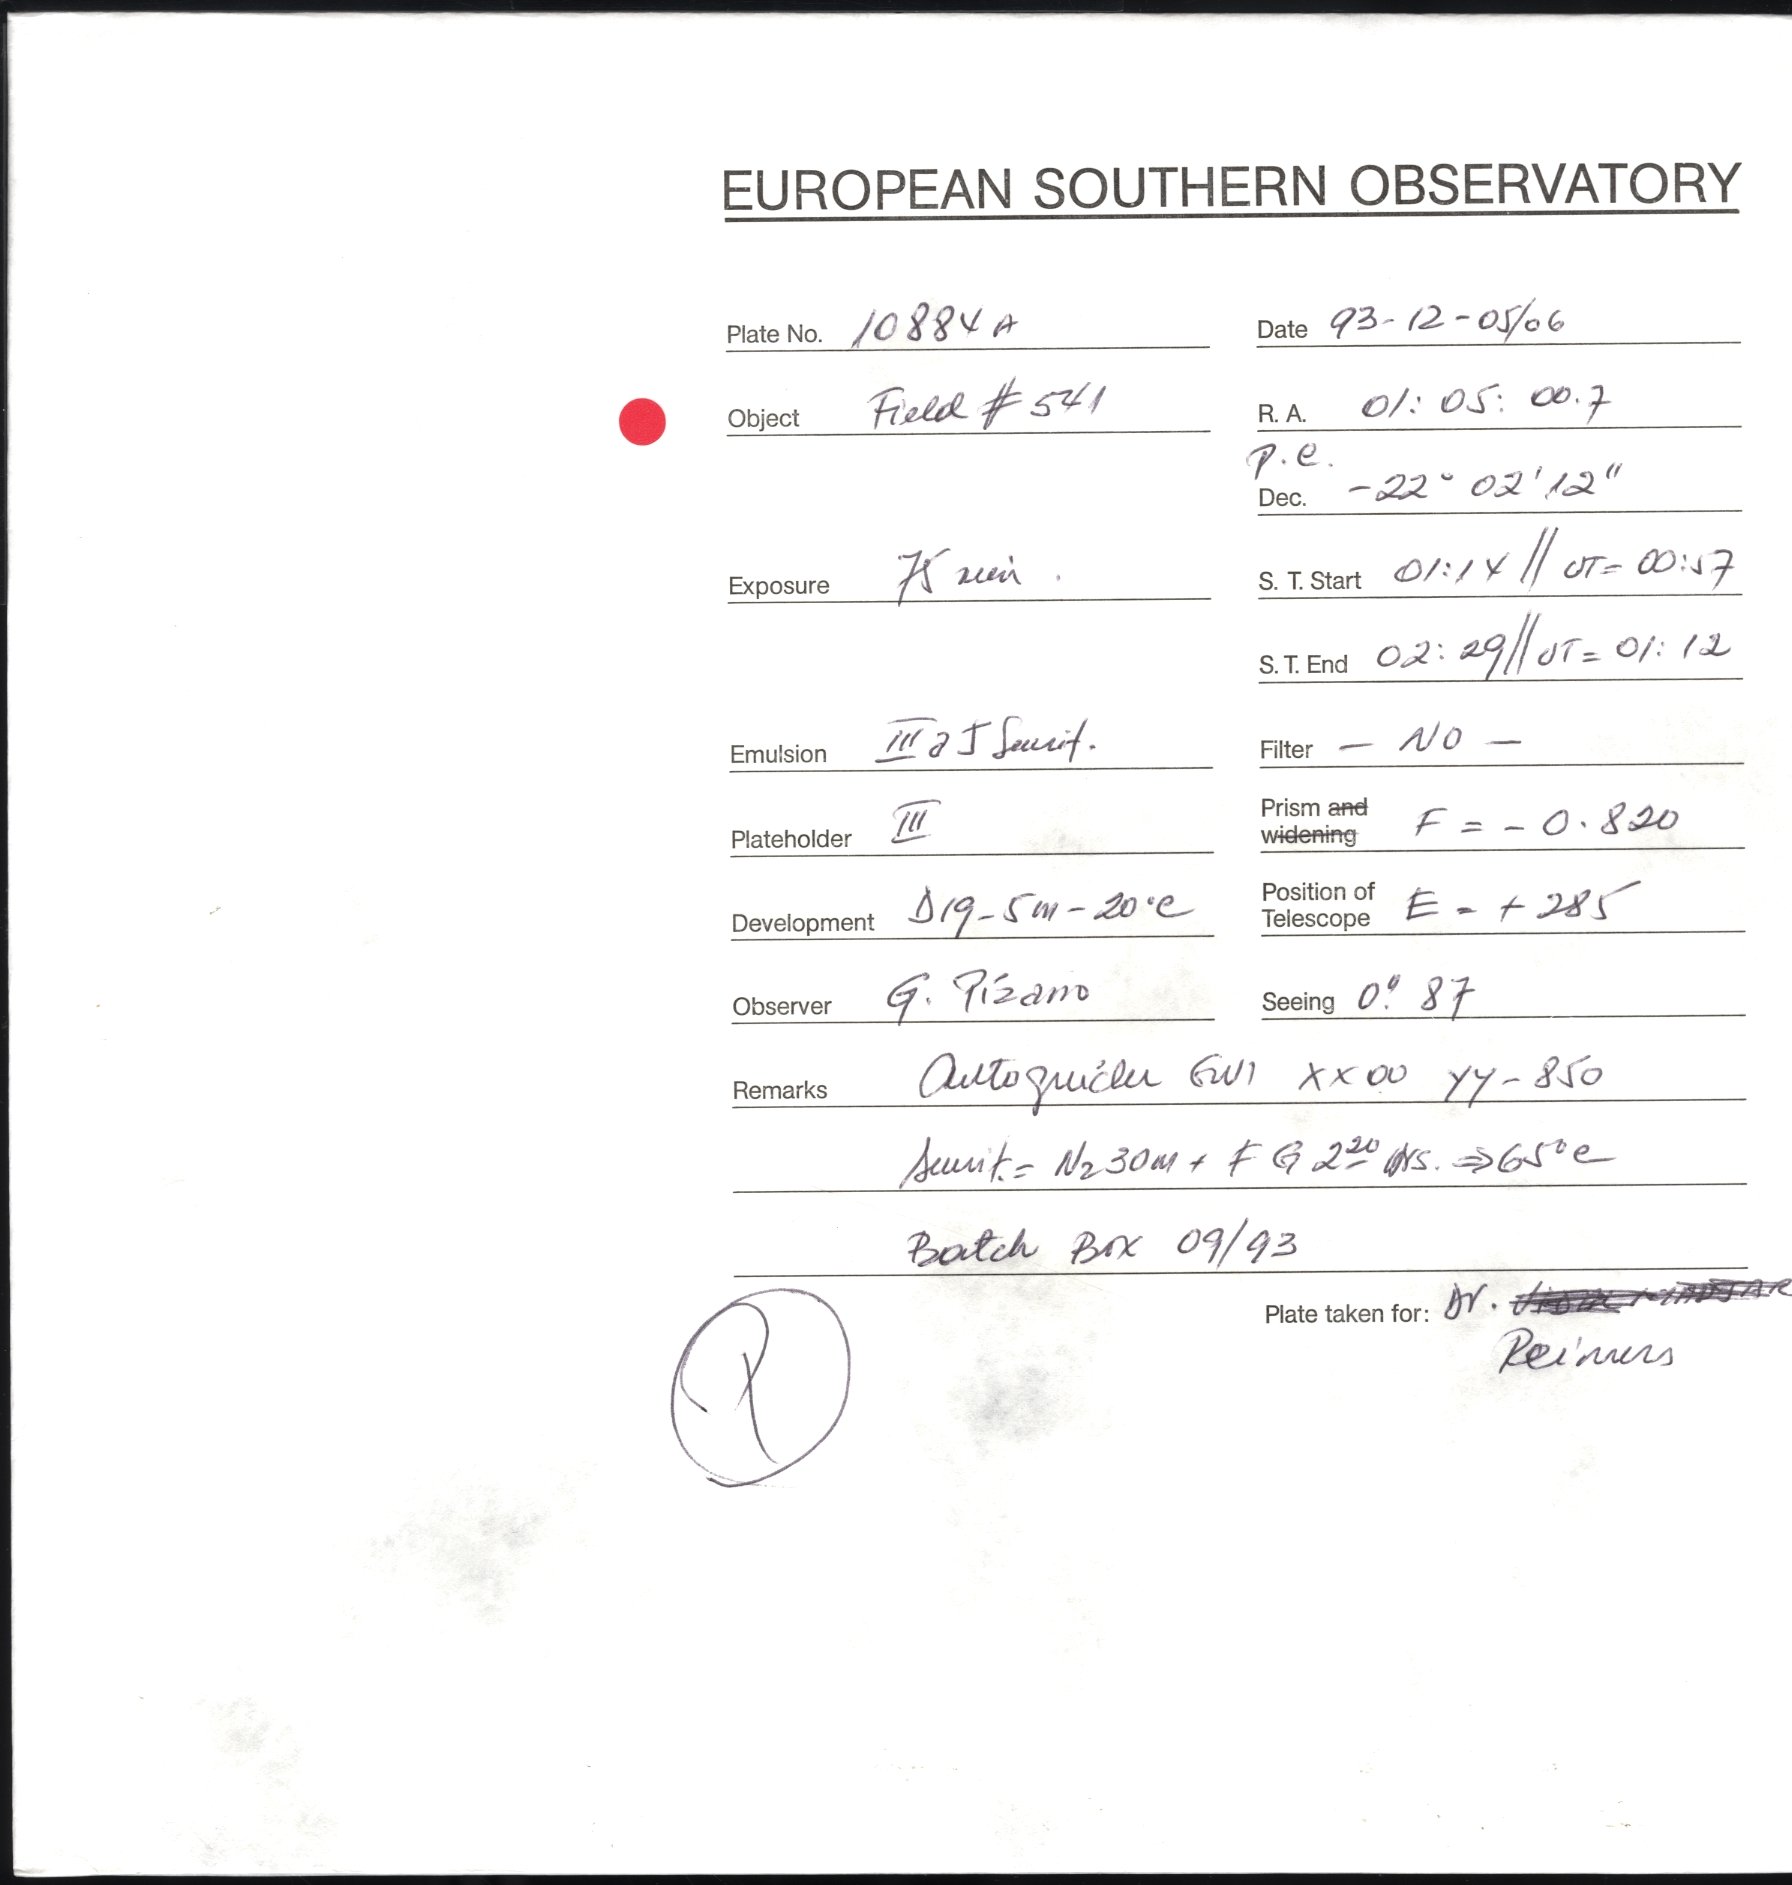 EUROPEAN SOUTHERN OBSERVATORY
Plate No. 10884 A Date 93-12-05/06
Object Field # 541 R. A. 01: 05: 00.7
p.e.
Dec. -22° 02' 12"
Exposure 75 min. S. T. Start 01:14 // UT= 00:57
S. T. End 02: 29 // UT= 01: 12
Emulsion III a J Sensit. Filter — NO —
Plateholder III Prism and widening F = - 0.820
Development D19-5m-20°C Position of Telescope E = + 285
Observer G. Pizarro Seeing 0." 87
Remarks Autoguider GW1 XX 00 YY- 850
Sensit.= N2 30m + F G 2 20 hrs. ⇒ 65°C
Batch Box 09/93
Plate taken for: Dr.
Reimers
R